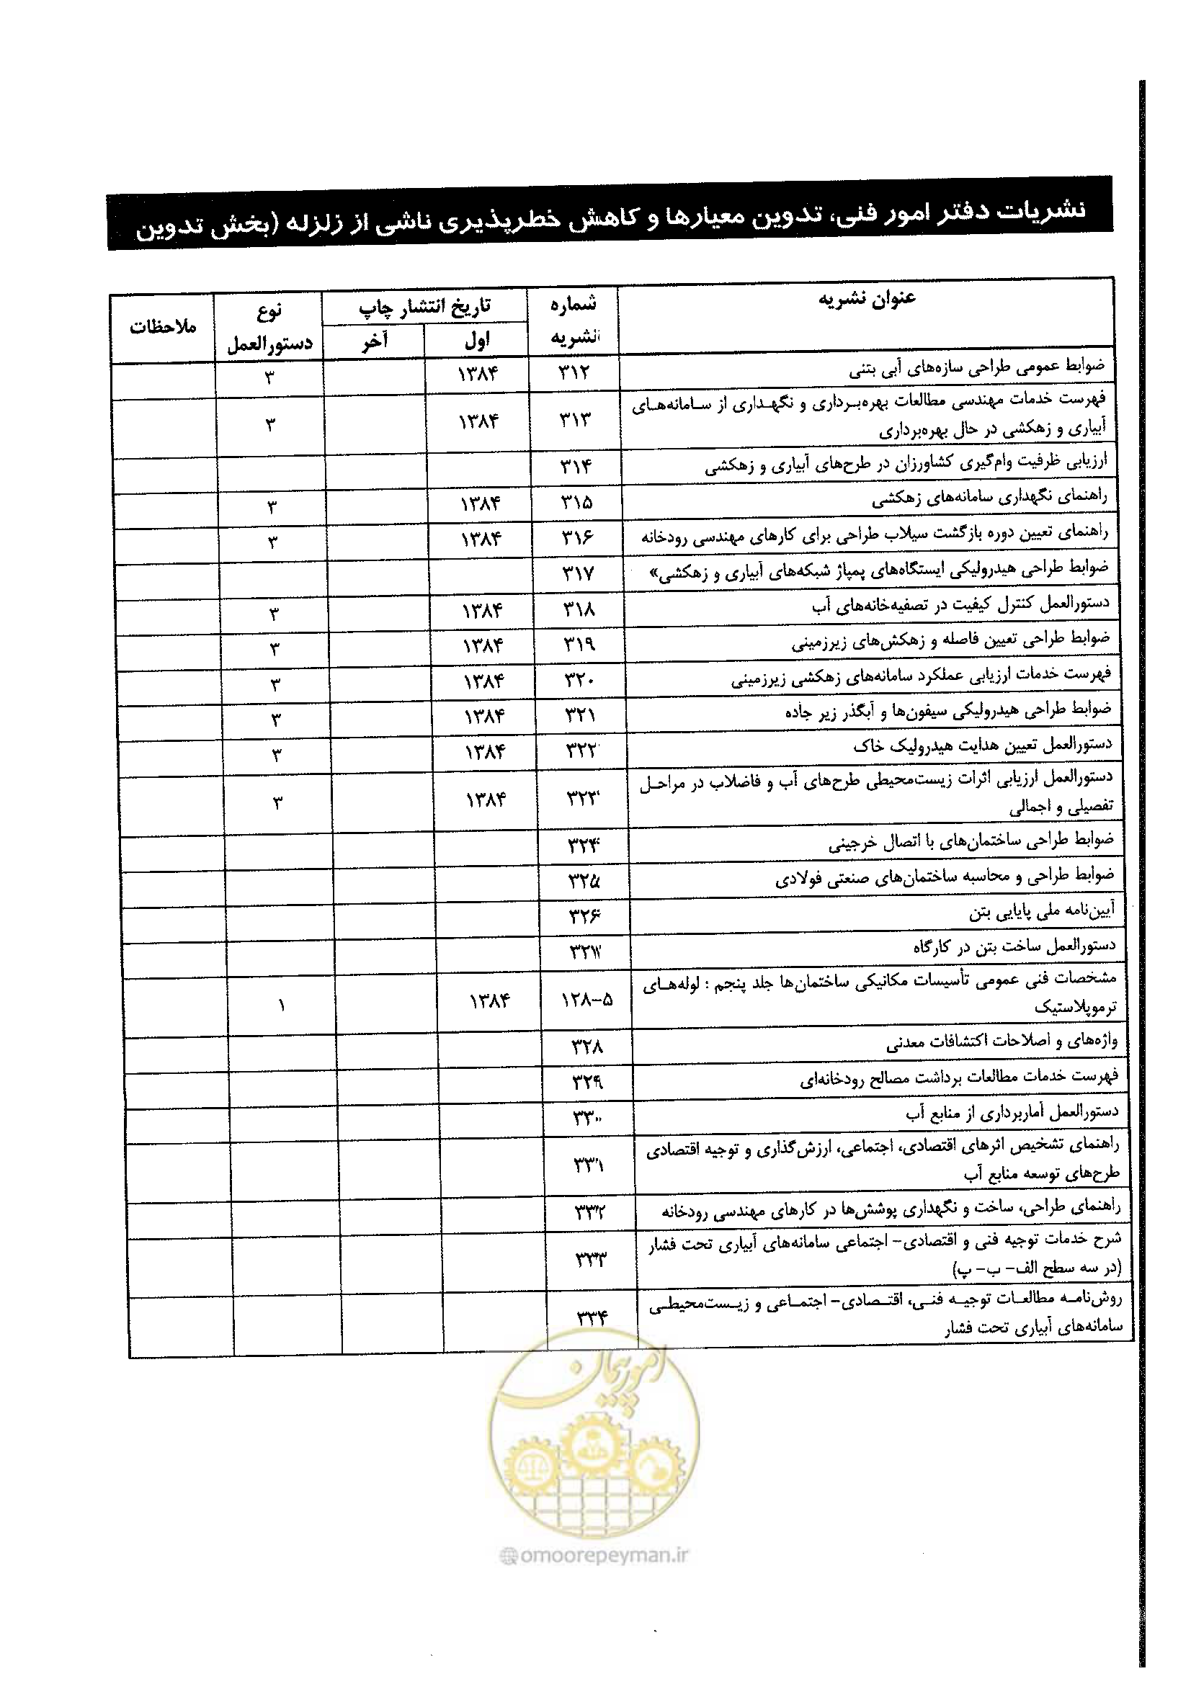 نشریات دفتر امور فنی، تدوین معیارها و کاهش خطرپذیری ناشی از زلزله (بخش تدوین
عنوان نشریه شماره نشریه تاریخ انتشار چاپ نوع دستورالعمل ملاحظات
اول آخر
ضوابط عمومی طراحی سازه‌های آبی بتنی ۳۱۲ ۱۳۸۴ ۳
فهرست خدمات مهندسی مطالعات بهره‌برداری و نگهداری از سامانه‌های
آبیاری و زهکشی در حال بهره‌برداری ۳۱۳ ۱۳۸۴ ۳
ارزیابی ظرفیت وام‌گیری کشاورزان در طرح‌های آبیاری و زهکشی ۳۱۴
راهنمای نگهداری سامانه‌های زهکشی ۳۱۵ ۱۳۸۴ ۳
راهنمای تعیین دوره بازگشت سیلاب طراحی برای کارهای مهندسی رودخانه ۳۱۶ ۱۳۸۴ ۳
ضوابط طراحی هیدرولیکی ایستگاه‌های پمپاژ شبکه‌های آبیاری و زهکشی» ۳۱۷
دستورالعمل کنترل کیفیت در تصفیه‌خانه‌های آب ۳۱۸ ۱۳۸۴ ۳
ضوابط طراحی تعیین فاصله و زهکش‌های زیرزمینی ۳۱۹ ۱۳۸۴ ۳
فهرست خدمات ارزیابی عملکرد سامانه‌های زهکشی زیرزمینی ۳۲۰ ۱۳۸۴ ۳
ضوابط طراحی هیدرولیکی سیفون‌ها و آبگذر زیر جاده ۳۲۱ ۱۳۸۴ ۳
دستورالعمل تعیین هدایت هیدرولیک خاک ۳۲۲ ۱۳۸۴ ۳
دستورالعمل ارزیابی اثرات زیست‌محیطی طرح‌های آب و فاضلاب در مراحل
تفصیلی و اجمالی ۳۲۳ ۱۳۸۴ ۳
ضوابط طراحی ساختمان‌های با اتصال خرجینی ۳۲۴
ضوابط طراحی و محاسبه ساختمان‌های صنعتی فولادی ۳۲۵
آیین‌نامه ملی پایایی بتن ۳۲۶
دستورالعمل ساخت بتن در کارگاه ۳۲۷
مشخصات فنی عمومی تأسیسات مکانیکی ساختمان‌ها جلد پنجم : لوله‌های
ترموپلاستیک ۱۲۸-۵ ۱۳۸۴ ۱
واژه‌های و اصلاحات اکتشافات معدنی ۳۲۸
فهرست خدمات مطالعات برداشت مصالح رودخانه‌ای ۳۲۹
دستورالعمل آماربرداری از منابع آب ۳۳۰
راهنمای تشخیص اثرهای اقتصادی، اجتماعی، ارزش‌گذاری و توجیه اقتصادی
طرح‌های توسعه منابع آب ۳۳۱
راهنمای طراحی، ساخت و نگهداری پوشش‌ها در کارهای مهندسی رودخانه ۳۳۲
شرح خدمات توجیه فنی و اقتصادی- اجتماعی سامانه‌های آبیاری تحت فشار
(در سه سطح الف- ب- پ) ۳۳۳
روش‌نامه مطالعات توجیه فنی، اقتصادی- اجتماعی و زیست‌محیطی
سامانه‌های آبیاری تحت فشار ۳۳۴
امور پیمان
@omoorepeyman.ir